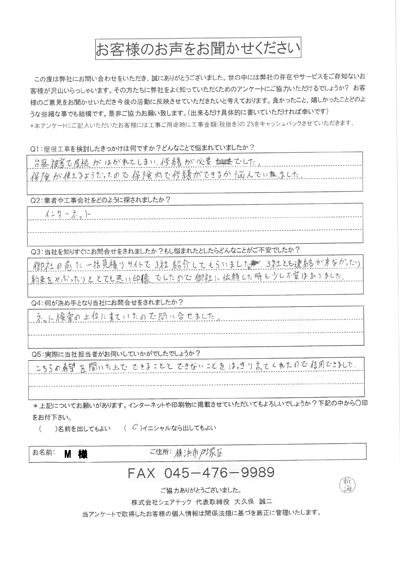 お客様のお声をお聞かせください
この度は弊社にお問い合わせをいただき、誠にありがとうございました。世の中には弊社の存在やサービスをご存知ないお
客様が沢山いらっしゃいます。その方たちに弊社をよく知っていただくためのアンケートにご協力いただけるでしょうか？ お客
様のご意見をお聞かせいただき今後の活動に反映させていただきたいと考えております。良かったこと、嬉しかったことどのよ
うな些細な事でも結構です。是非ご協力お願い致します。（出来るだけ具体的に書いていただければ幸いです）
*本アンケートにご記入いただいたお客様には工事ご用命時に工事金額（税抜き）の2％をキャッシュバックさせていただきます。
Q1：屋根工事を検討したきっかけは何ですか？どんなことで悩まれていましたか？
台風被害で屋根がはがれてしまい、修繕が必要でした。
保険が使えるようだったので保険内で修繕ができるか悩んでいました。
Q2：業者や工事会社をどのように探されましたか？
インターネット
Q3：当社を知りすぐにお問合せをされましたか？もし悩まれたとしたらどんなことがご不安でしたか？
御社の前に一括見積りサイトで3社紹介してもらいました。3社とも連絡が来なかったり
約束をやぶったりととても悪い印象でしたので御社に依頼した時も少し不安はありました。
Q4：何が決め手となり当社にお問合せをされましたか？
ネット検索の上位に来ていたので問い合せました。
Q5：実際に当社担当者がお伺いしていかがでしたでしょうか？
こちらの希望を聞いた上でできることとできないことをはっきり言ってくれたので信用できました。
＊上記についてお願いがあります。インターネットや印刷物に掲載させていただいてもよろしいでしょうか？下記の中から〇印
をお付下さい。
（ ）名前を出してもよい （〇）イニシャルなら出してもよい
お名前： M 様 ご住所： 横浜市戸塚区
FAX 045-476-9989
ご協力ありがとうございました。
株式会社シェアテック 代表取締役 大久保 誠二
当アンケートで取得したお客様の個人情報は関係法規に基づき厳正に管理いたします。